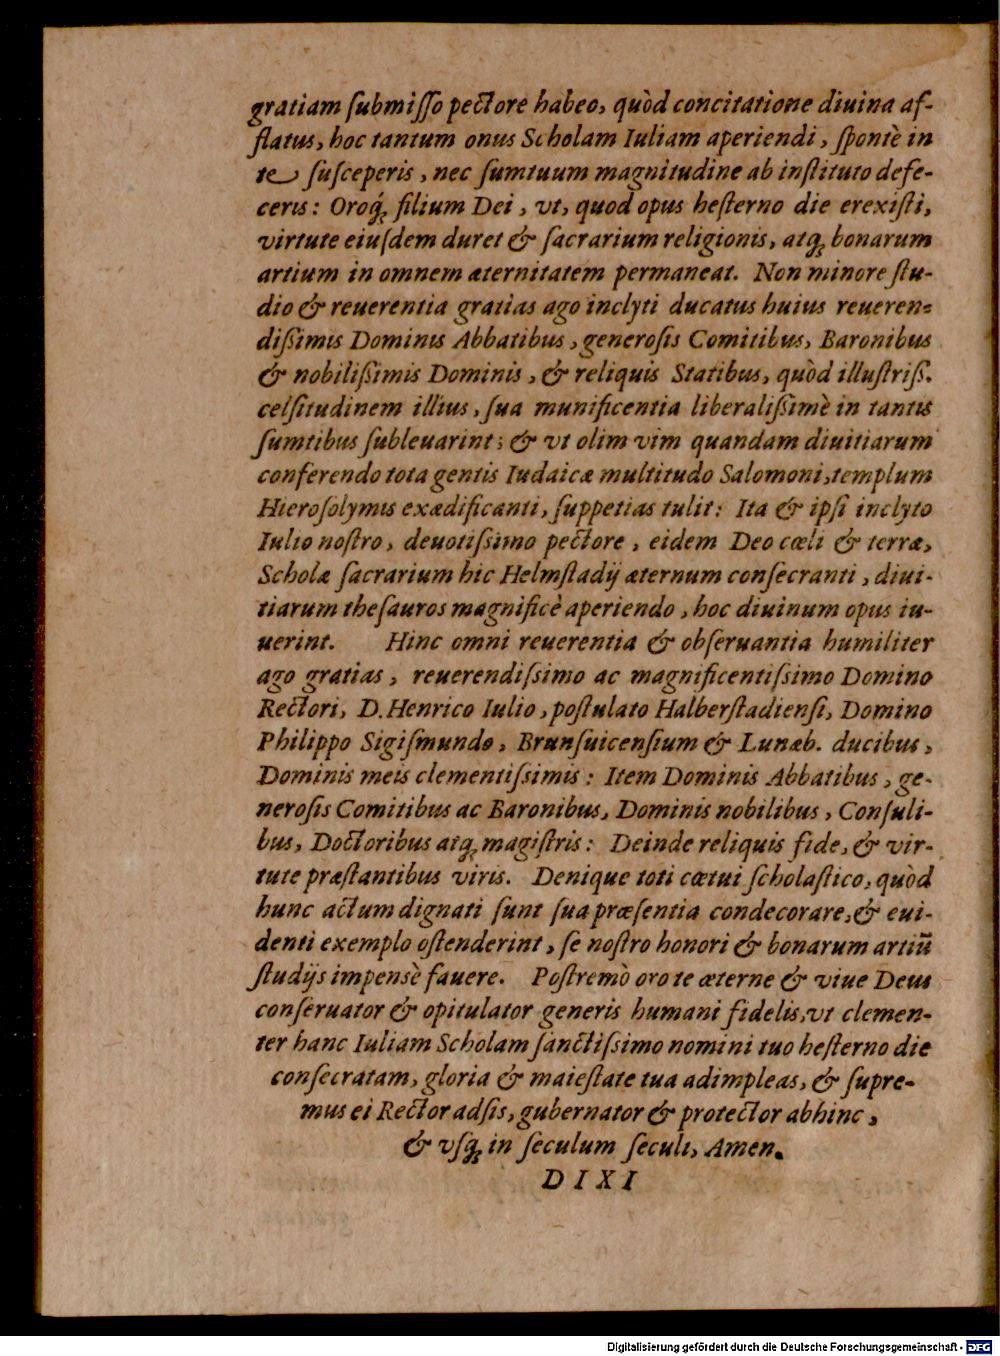 gratiam ſubmiſſo pectore habeo, quòd concitatione diuina af-
flatus, hoc tantum onus Scholam Iuliam aperiendi, ſpontè in
te ſuſceperis, nec ſumtuum magnitudine ab inſtituto defe-
ceris: Oroq́ꝫ filium Dei, vt, quod opus heſterno die erexiſti,
virtute eiuſdem duret & ſacrarium religionis, atqꝫ bonarum
artium in omnem æternitatem permaneat. Non minore ſtu-
dio & reuerentia gratias ago inclyti ducatus huius reueren-
diſsimis Dominis Abbatibus, generoſis Comitibus, Baronibus
& nobiliſsimis Dominis, & reliquis Statibus, quòd illuſtriſſ.
celſitudinem illius, ſua munificentia liberaliſsimè in tantis
ſumtibus ſubleuarint; & vt olim vim quandam diuitiarum
conferendo tota gentis Iudaicæ multitudo Salomoni, templum
Hieroſolymis exædificanti, ſuppetias tulit: Ita & ipſi inclyto
Iulio noſtro, deuotiſsimo pectore, eidem Deo cœli & terræ,
Scholæ ſacrarium hic Helmſtadij æternum conſecranti, diui-
tiarum theſauros magnificè aperiendo, hoc diuinum opus iu-
uerint. Hinc omni reuerentia & obſeruantia humiliter
ago gratias, reuerendiſsimo ac magnificentiſsimo Domino
Rectori, D. Henrico Iulio, poſtulato Halberſtadienſi, Domino
Philippo Sigiſmundo, Brunſuicenſium & Lunæb. ducibus,
Dominis meis clementiſsimis: Item Dominis Abbatibus, ge-
neroſis Comitibus ac Baronibus, Dominis nobilibus, Conſuli-
bus, Doctoribus atqꝫ magiſtris: Deinde reliquis fide, & vir-
tute præſtantibus viris. Denique toti cœtui ſcholaſtico, quòd
hunc actum dignati ſunt ſua præſentia condecorare, & eui-
denti exemplo oſtenderint, ſe noſtro honori & bonarum artiū
ſtudijs impensè fauere. Poſtremò oro te æterne & viue Deus
conſeruator & opitulator generis humani fidelis, vt clemen-
ter hanc Iuliam Scholam ſanctiſsimo nomini tuo heſterno die
conſecratam, gloria & maieſtate tua adimpleas, & ſupre-
mus ei Rector adſis, gubernator & protector abhinc,
& vſqꝫ in ſeculum ſeculi, Amen.
DIXI
Digitalisierung gefördert durch die Deutsche Forschungsgemeinschaft - DFG